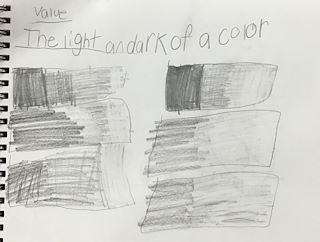 Value
The light an dark of a color